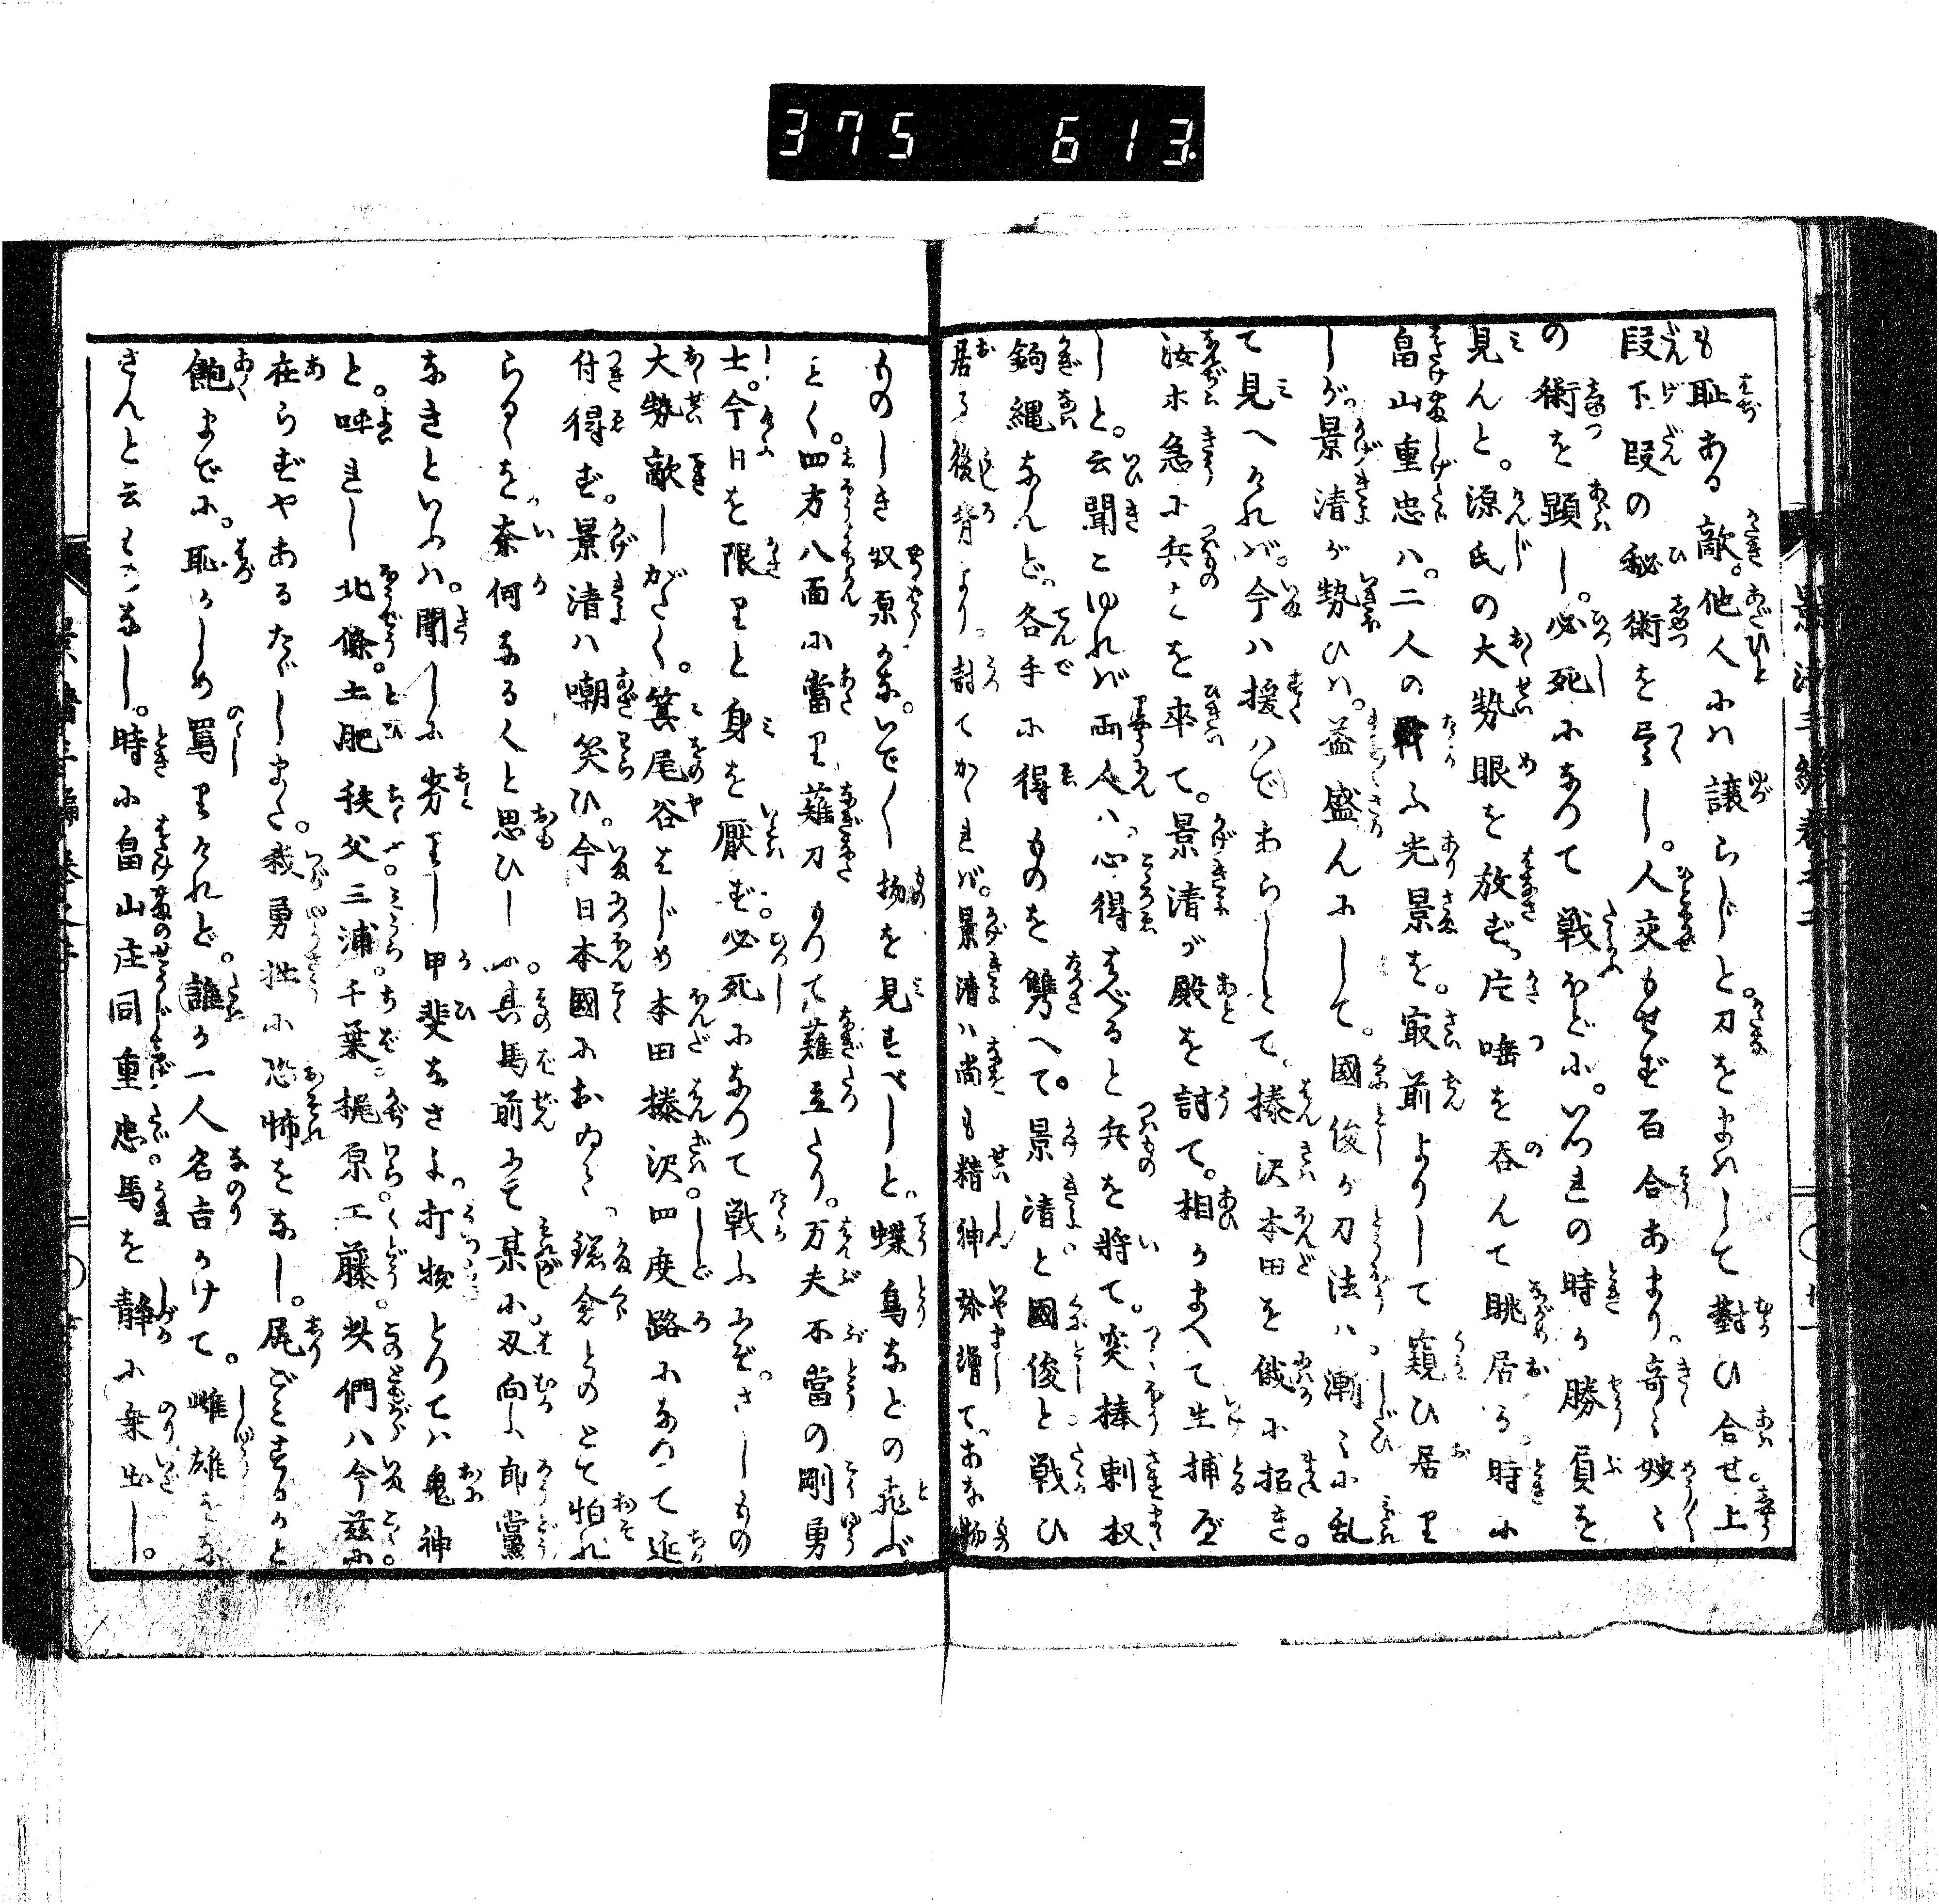 375 613
も恥ある敵。他人にハ譲らじと。刀をまハして對ひ合せ。上
段下段の秘術を尽し。人交もせず百合あまり。奇〻妙〻
の術を顕し。必死になつて戦ふほどに。いつれの時か勝負を
見んと。源氏の大勢眼を放ず。片唾を呑んて眺居る。時に
畠山重忠ハ。二人の戦ふ光景を。最前よりして窺ひ居り
しが。景清が勢ひハ。益盛んにして。國俊が刀法ハ漸〻に乱
て見へけれバ。今ハ援ハでわらしとて。榛沢本田を俄に招き。
汝ホ急に兵士を率て。景清が殿を討て。相かまへて生捕べ
しと。云聞こゆれバ両人ハ。心得はべると兵を將て。突棒刺杈
鈎縄なんど。各手に得ものを雙へて。景清と國俊と戦ひ
居る後背より。討てかゝれバ。景清ハ尚も精神弥増て。あな物
ものしき奴原かな。いで〳〵物を見すべしと。蝶鳥なとの飛ぶ
ごとく。四方八面に當り薙刀もつて薙立たり。万夫不當の剛勇
士。今日を限りと身を厭ず。必死になつて戦ふにぞ。さしもの
大勢敵しがたく。箕尾谷はじめ本田榛沢。四度路になつて近
付得ず。景清ハ嘲笑ひ。今日本國におゐて。鎌倉とのとて怕れ
らるゝを。奈何なる人と思ひしに。其馬前にて某に刃向ふ郎黨
なきといふハ。聞しに劣りし甲斐なさよ。打物とつてハ鬼神
と。呼れし北條。土肥秩父三浦。千葉。梶原工藤。其们ハ今茲に
在らずやあるたゞしまた。我勇壮に恐怖をなし。尻ごミするかと
飽までに。恥かしめ罵りけれど。誰か一人名吉かけて。雌雄をな
さんと云ものなし。時に畠山庄司重忠。馬を静に乗出し。